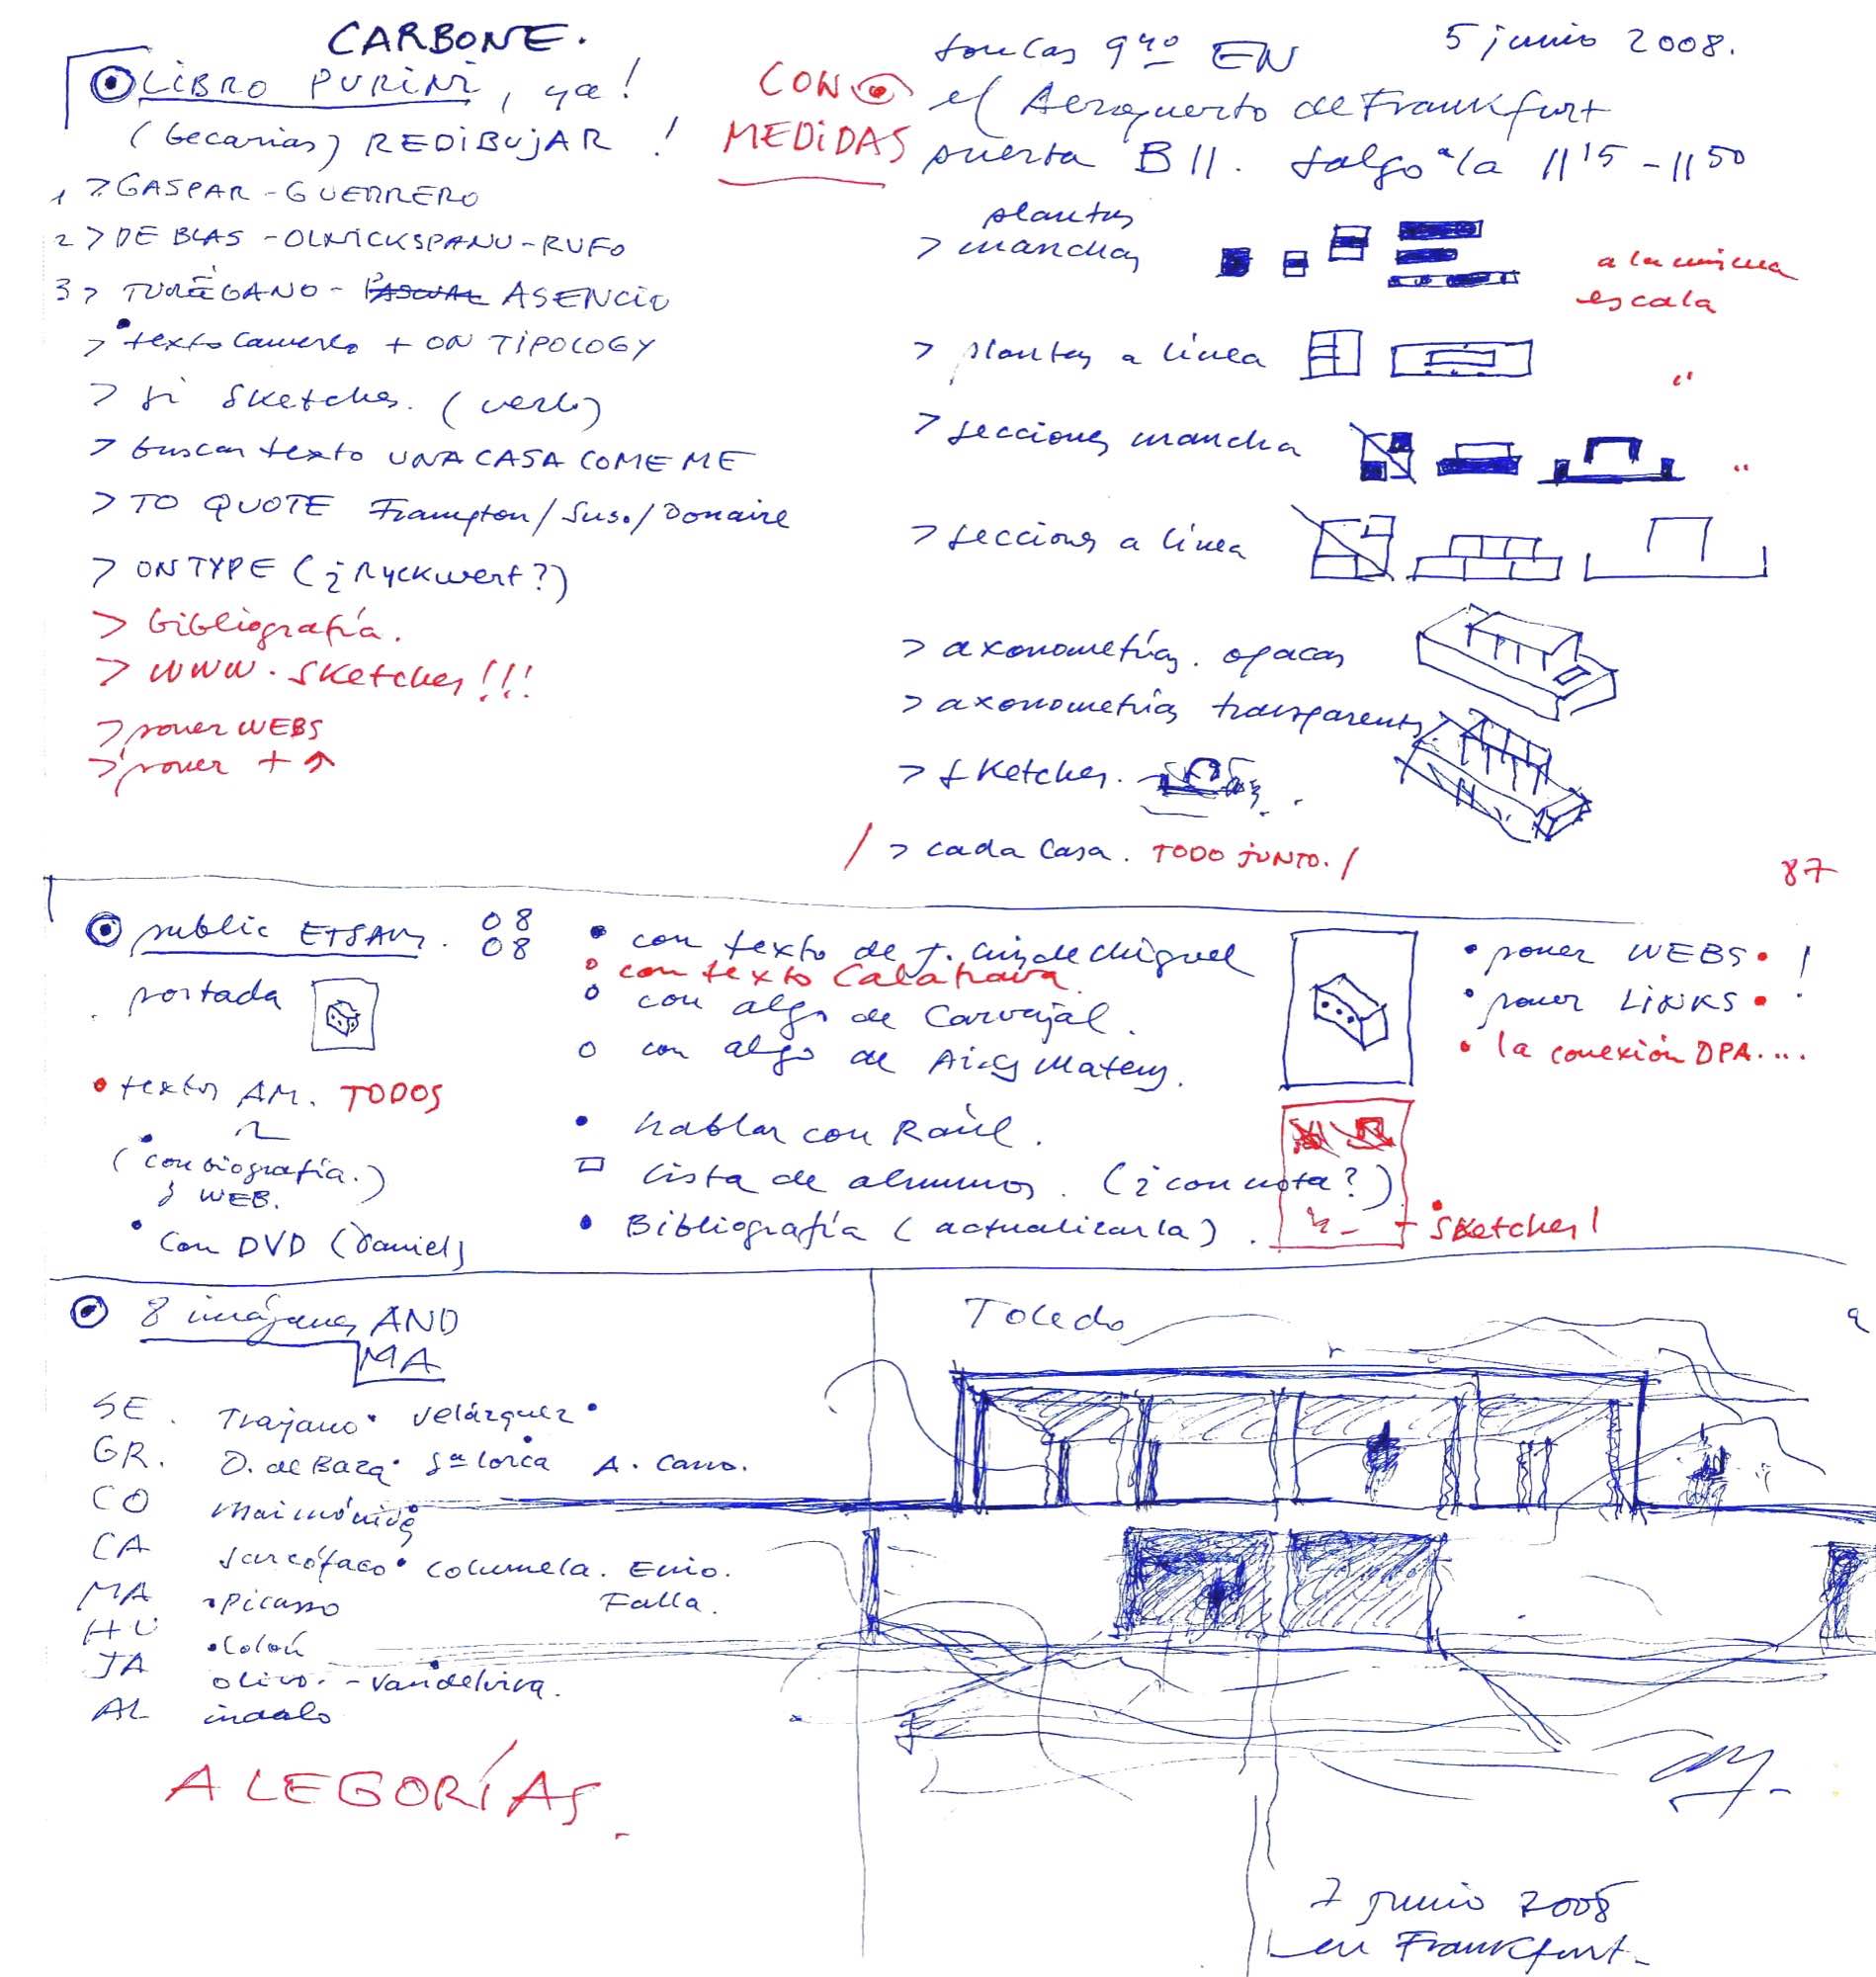 CARBONE.
LIBRO PURINI, ya!
(becarias) REDIBUJAR !
CON
MEDIDAS
1 > GASPAR - GUERRERO
2 > DE BLAS - OLNICKSPANU - RUFO
3 > TURÉGANO - PASCUAL ASENCIO
> texto + ON TIPOLOGY
> si sketches. (verlo)
> buscar texto UNA CASA COME ME
> TO QUOTE Frampton/Suso/Donaire
> ON TYPE (¿Ryckwert?)
> bibliografía.
> WWW. Sketches!!!
> poner WEBS
> poner +
5 junio 2008.
son las 9 40 EN
el Aeropuerto de Frankfurt
puerta B11. salgo a la 11 15 - 11 50
plantas
> manchas
a la misma
escala
> plantas a línea
"
> secciones mancha
"
> secciones a línea
> axonometrías. opacas
> axonometrías transparentes
> sketches.
/ > cada casa. TODO JUNTO. /
87
public ETSAM. 08
08
portada
• textos AM. TODOS
(con biografía.)
y WEB.
• con DVD (Daniel)
• con texto de J. Luis de Miguel
° con texto Calatrava.
o con algo de Carvajal.
o con algo de Aires Mateus.
• hablar con Raúl.
lista de alumnos. (¿con nota?)
• Bibliografía (actualizarla).
• poner WEBS • !
• poner LINKS • !
• la conexión DPA....
+ sketches!
8 imágenes AND
MA
SE. Trajano • Velázquez •
GR. D. de Baza • Gª Lorca A. Cano.
CO Maimónides
CA Sarcófago • Columela.
Falla.
MA • Picasso
HU • Colón
JA olivo. - Vandelvira.
AL indalo
ALEGORÍAS.
Toledo
a
7 junio 2008
en Frankfurt.